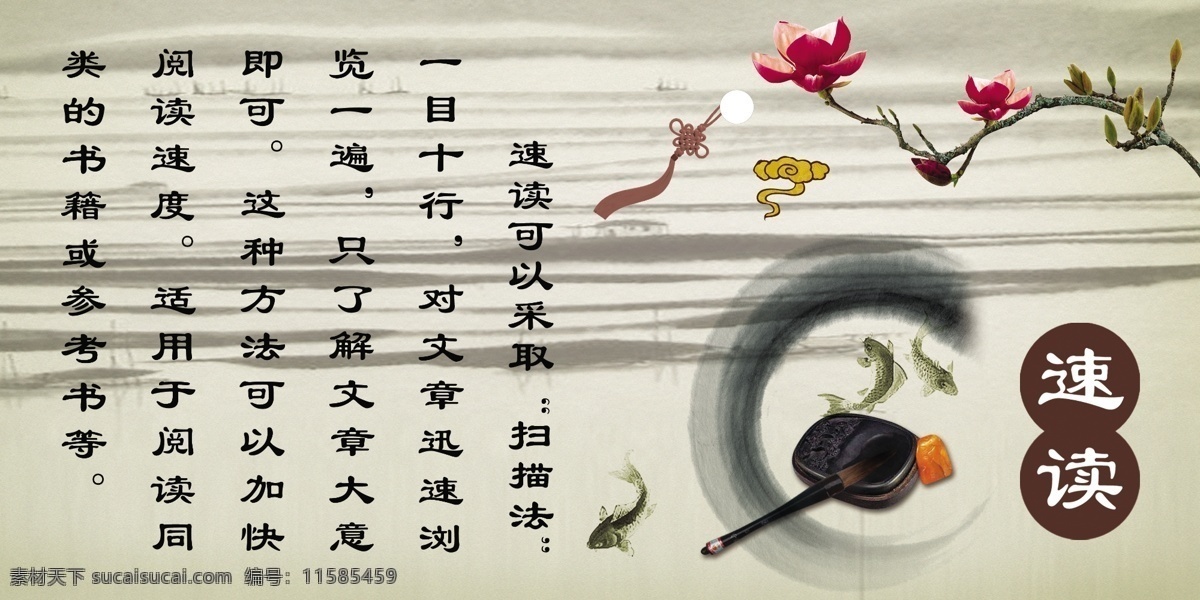 速读
速读可以采取“扫描法”
一目十行，对文章迅速浏
览一遍，只了解文章大意
即可。这种方法可以加快
阅读速度。适用于阅读同
类的书籍或参考书等。
素材天下 sucaisucai.com 编号：11585459